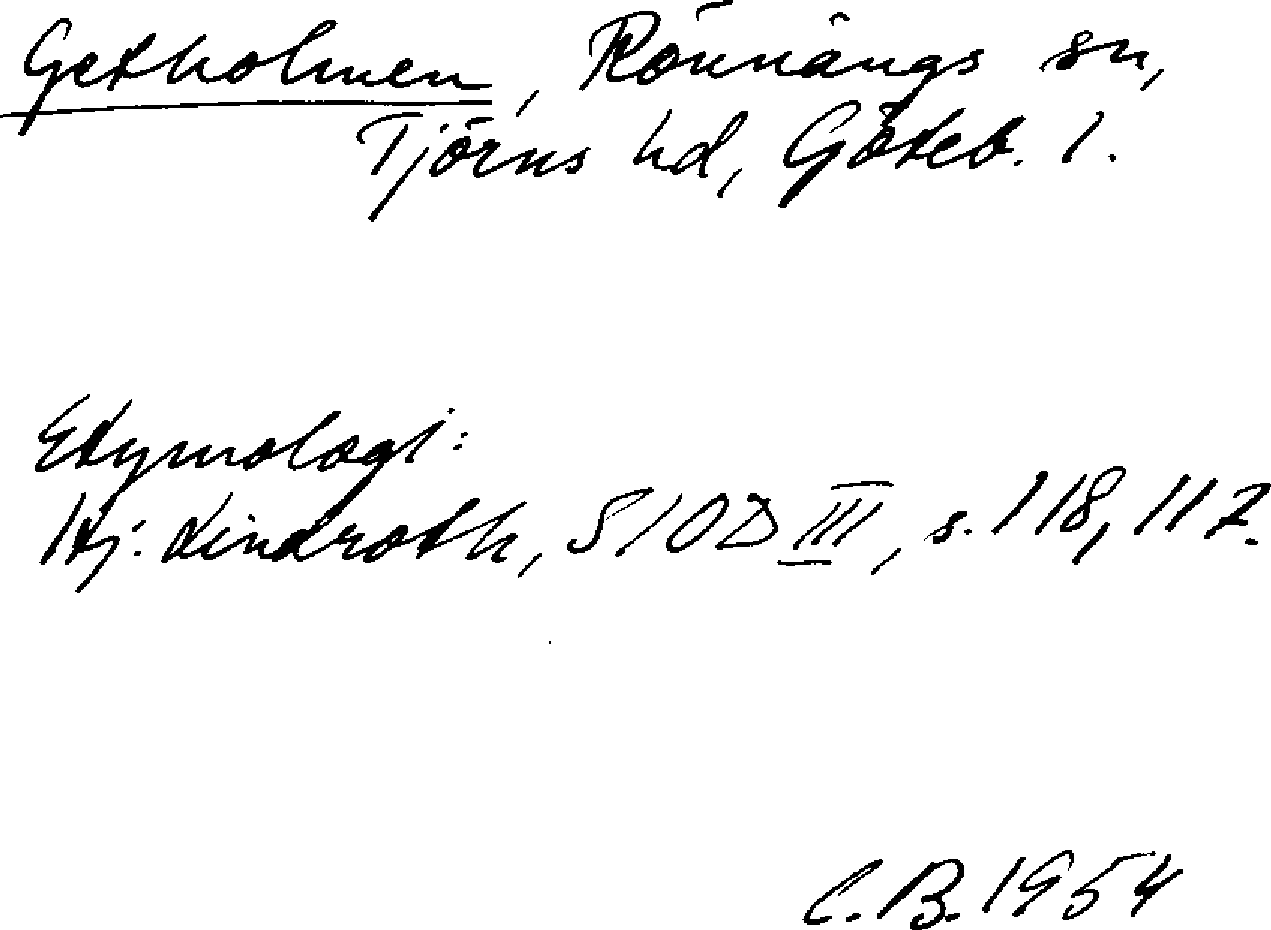 Getholmen, Rönnängs sn,
Tjörns hd, Göteb. l.
Etymologi:
Hj. Lindroth, SIOD III, s. 118, 117.
C.B. 1954